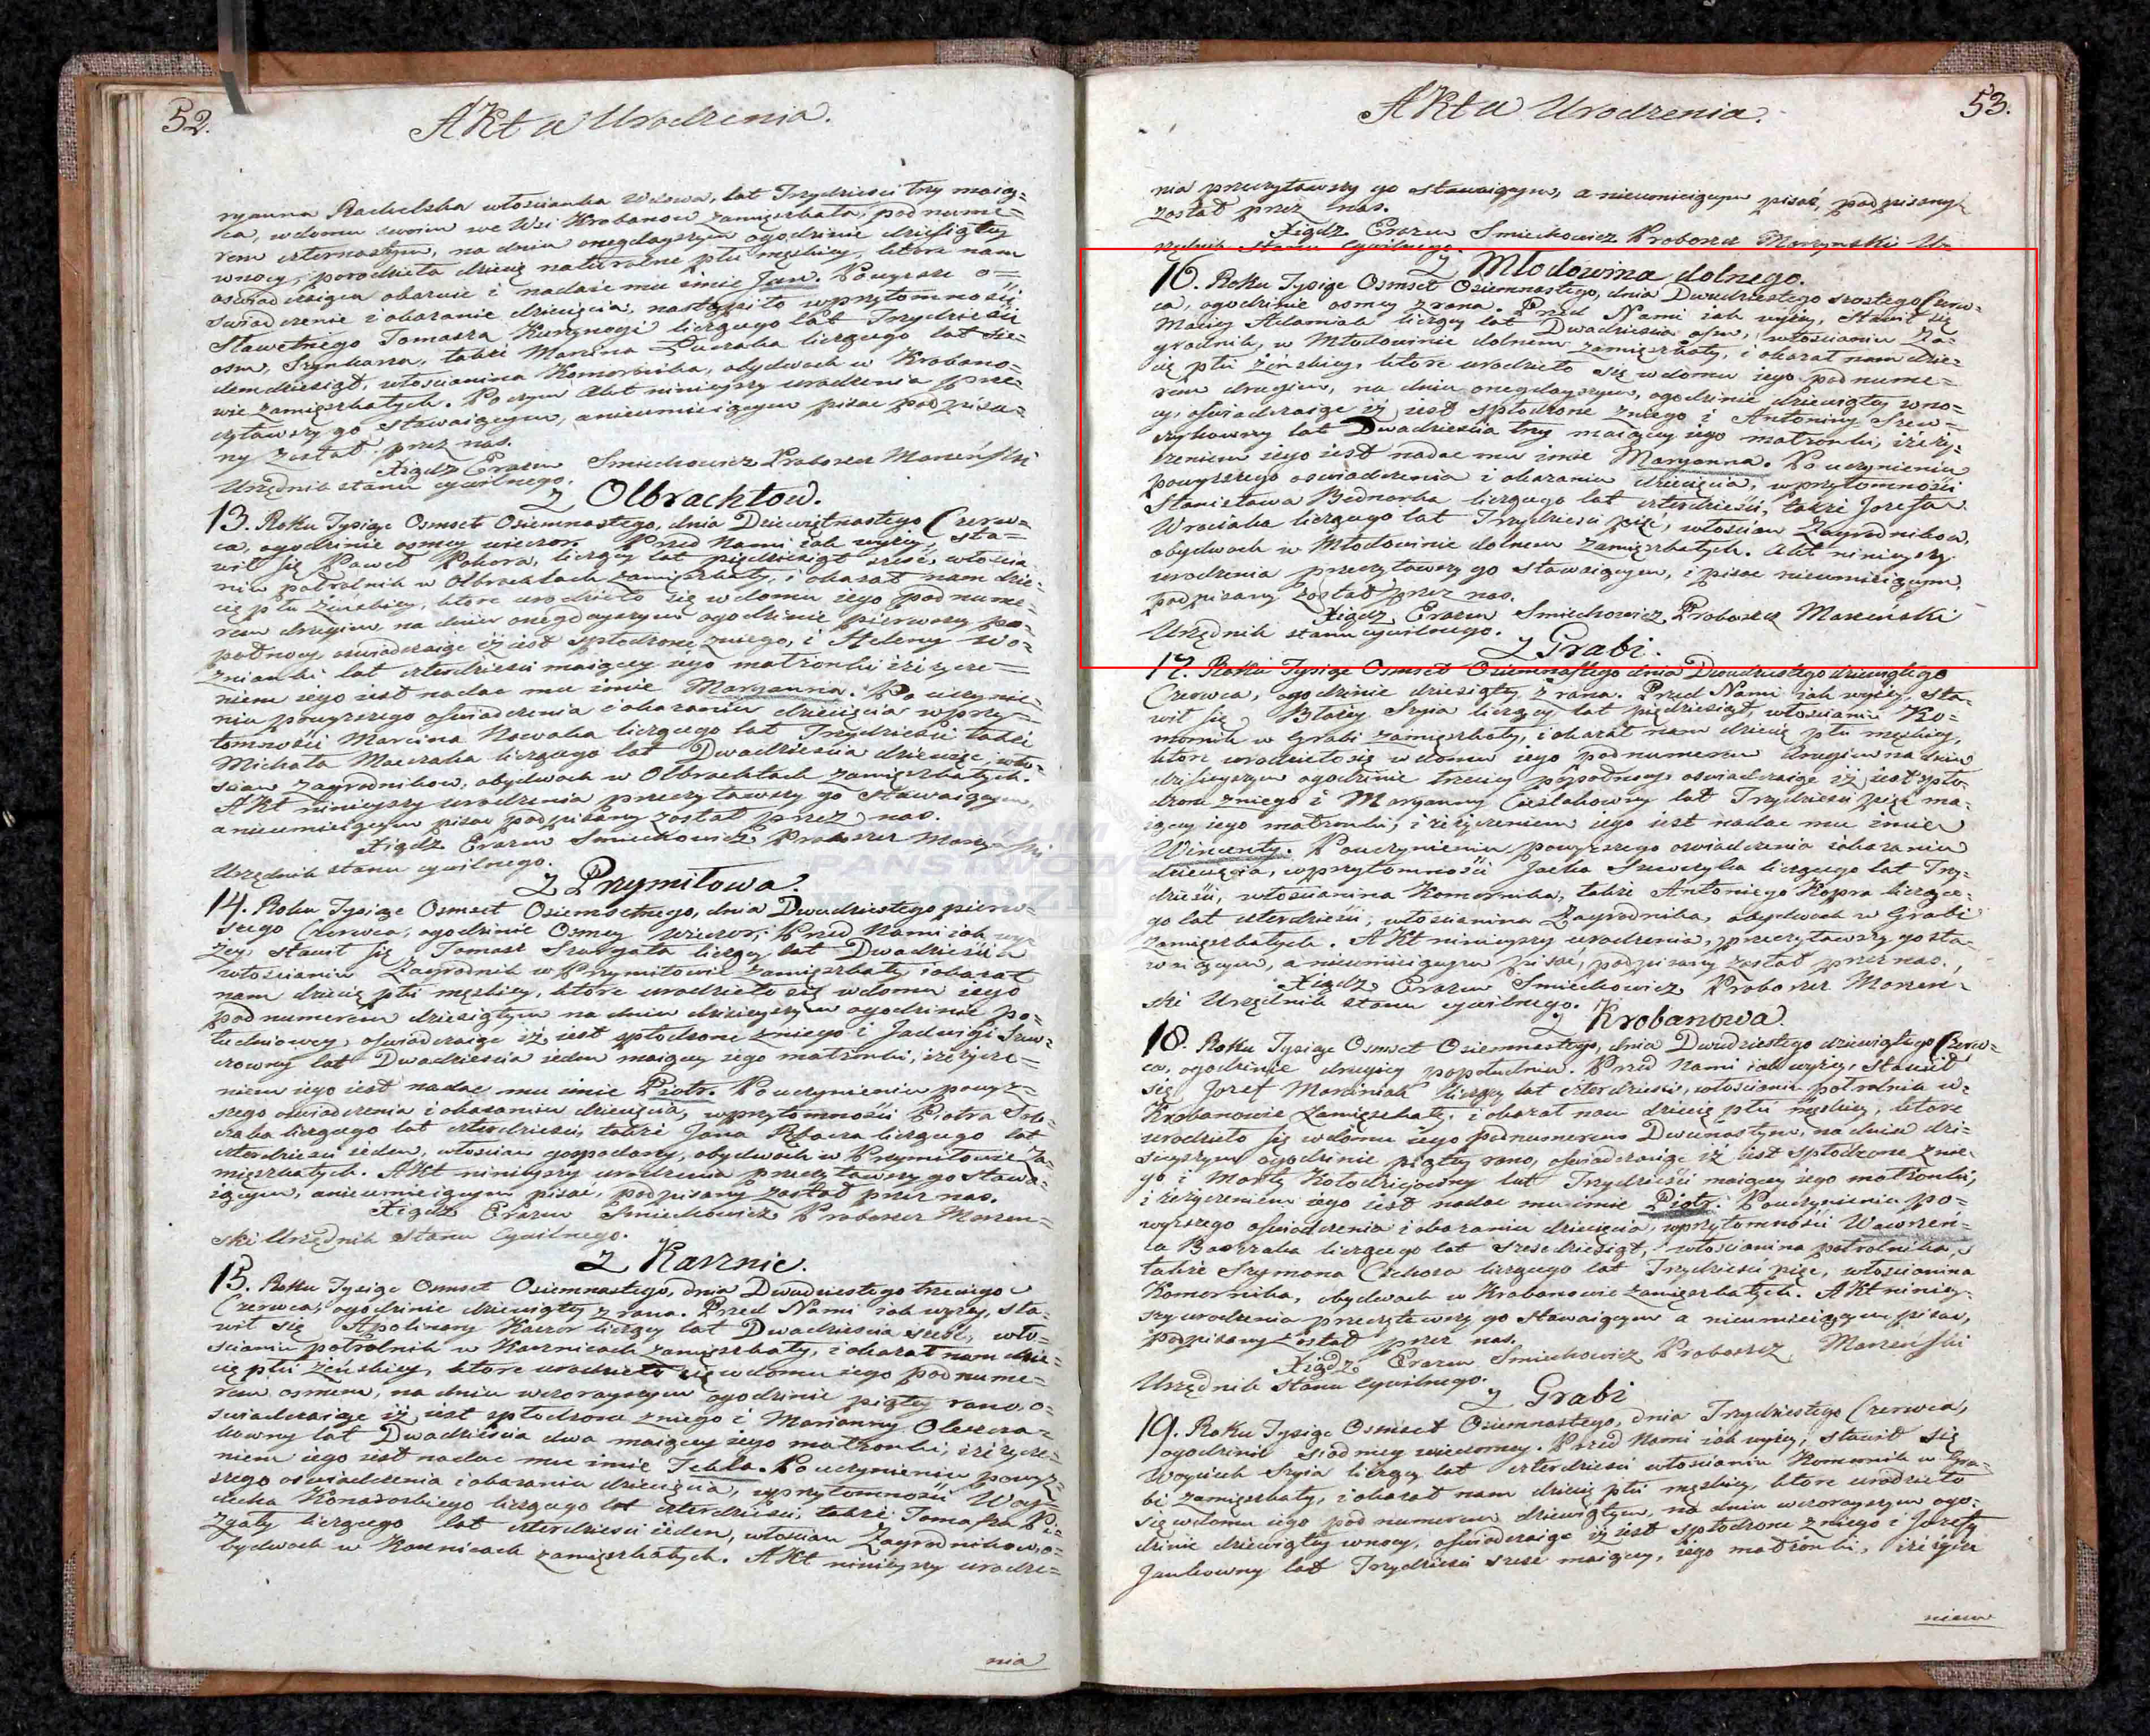 52.
Akta Urodzenia.
ryanna Stachelska włościanka Wdowa, lat Trzydzieści trzy maią=
ca, w domu swoim we Wsi Krobanow zamięszkała, pod nume=
rem czternastym, na dniu onegdayszym o godzinie dziesiątey
wnocy, porodziła dziecię naturalne płci męskiey, które nam
oświadczaiąca okazuie i nadaie mu imie Jan. Powyższe o=
świadczenie i okazanie dziecięcia, nastąpiło w przytomności
Sławetnego Tomasza liczącego lat Trzydzieści
osm, Szynkarza, także Marcina liczącego lat Sie=
demdziesiąt, włościanina Komornika, obydwoch w Krobano=
wie zamięszkałych. Poczym Akt ninieyszy urodzenia prze=
czytawszy go Stawaiącym, a nieumieiącym pisac podpisa=
ny został przez nas.
Xiądz Erazm Smiechowicz Proboszcz Marzeński
Urzędnik stanu cywilnego.
z Olbrachtow.
13. Roku Tysiąc Osmset Osiemnastego, dnia Dziewiętnastego Czerw=
ca, o godzinie osmey wieczor. Przed Nami iak wyżey sta=
wił się Paweł Pokora, liczący lat pięćdziesiąt sześć, włościa=
nin połrolnik w Olbrachtach zamięszkały, i okazał nam dzie=
cię płci żeńskiey, ktore urodziło się w domu iego pod nume=
rem drugim, na dniu onegdayszym o godzinie pierwszy po=
połnocy oświadczaiąc iż iest spłodzone z niego, i Heleny Wo=
zniaki lat czterdzieści maiącey iego małżonki iż życze=
niem iego iest nadac mu imie Maryanna. Po uczynie=
niu powyższego oświadczenia i okazaniu dziecięcia w przy=
tomności Marcina Nowaka liczącego lat Trzydzieści także
Michała Maczaka liczącego lat Dwadzieścia dziewięć, wło=
ścian Zagrodnikow, obydwoch w Olbrachtach zamięszkałych.
Akt ninieyszy urodzenia przeczytawszy go Stawaiącym,
a nieumieiącym pisac podpisany został przez nas.
Xiądz Erazm Smiechowicz Proboszcz Marzeński
Urzędnik stanu cywilnego.
z Przymiłowa.
14. Roku Tysiąc Osmset Osiemnastego, dnia Dwudziestego pierw=
szego Czerwca, o godzinie Osmey wieczor, Przed Nami iak wy=
żey, stawił się Tomasz Szurgała liczący lat Dwadzieścia
włościanin Zagrodnik w Przymiłowie zamięszkały i okazał
nam dziecię płci męskiey, ktore urodziło się w domu iego
pod numerem dziesiątym na dniu dzisieyszym o godzinie po=
łudniowey, oświadczaiąc iż iest spłodzone z niego i Jadwigi Szew=
czowny lat Dwadzieścia ieden maiącey iego małżonki, iż życze=
niem iego iest nadac mu imie Piotr. Po uczynieniu powyż=
szego oświadczenia i okazaniu dziecięcia, w przytomności Piotra
liczącego lat czterdzieści, także Jana liczącego lat
czterdzieści ieden, włościan gospodarzy, obydwoch w Przymiłowie Za=
mięszkałych. Akt ninieyszy urodzenia przeczytawszy go Stawa=
iącym, a nieumieiącym pisac, podpisany został przez nas.
Xiądz Erazm Smiechowicz Proboszcz Marzen=
ski Urzędnik stanu Cywilnego.
z Karznic.
15. Roku Tysiąc Osmset Osiemnastego, dnia Dwudziestego trzeciego
Czerwca, o godzinie dziewiątey z rana. Przed Nami iak wyżey, sta=
wił się Apolinary Kaczor liczący lat Dwadzieścia sześć, wło=
ścianin połrolnik w Karznicach zamięszkały, i okazał nam dzie=
cię płci żeńskiey, ktore urodziło się w domu iego pod nume=
rem osmym, na dniu wczorayszym o godzinie piątey rano, o=
świadczaiąc iż iest spłodzone z niego i Marianny Oleszcza=
kowny lat Dwadzieścia dwa maiącey iego małżonki, iż życze=
niem iego iest nadac mu imie Tekla. Po uczynieniu powyż=
szego oświadczenia i okazaniu dziecięcia, w przytomności Woy=
ciecha Konarskiego liczącego lat czterdzieści, także Tomasza Pi=
zgały liczącego lat czterdzieści ieden, włościan Zagrodnikow, o=
bydwoch w Karznicach zamięszkałych. Akt ninieyszy urodze=
nia
53.
Akta Urodzenia.
nia przeczytawszy go stawaiącym, a nieumieiącym pisać, podpisany
został przez nas.
Xiądz Erazm Smiechowicz Proboszcz Marzynski U=
rzędnik Stanu Cywilnego.
z Młodowina dolnego.
16. Roku Tysiąc Osmset Osiemnastego, dnia Dwudziestego szostego Czerw=
ca, o godzinie osmey z rana. Przed Nami iak wyżey, Stawił się
Maciey Adamiak liczący lat Dwadzieścia osm, włościanin Za=
grodnik, w Młodowinie dolnem zamięszkały, i okazał nam dzie=
cię płci żeńskiey, ktore urodziło się w domu iego pod nume=
rem drugim, na dniu onegdayszym, o godzinie dziewiątey wno=
cy, oświadczaiąc iż iest spłodzone z niego i Antoniny Szew=
czykowny lat Dwadzieścia trzy maiącey iego małżonki, iż ży=
czeniem iego iest nadac mu imie Maryanna. Po uczynieniu
powyższego oświadczenia i okazaniu dziecięcia, w przytomności
Stanisława Bednarka liczącego lat czterdzieści, także Jozefa
Wrociaka liczącego lat Trzydzieści pięć, włościan Zagrodnikow,
obydwoch w Młodowinie dolnem zamięszkałych. Akt ninieyszy
urodzenia przeczytawszy go stawaiącym, i pisac nieumieiącym,
podpisany został przez nas.
Xiądz Erazm Smiechowicz Proboszcz Marzeński
Urzędnik stanu cywilnego.
z Grabi.
17. Roku Tysiąc Osmset Osiemnastego dnia Dwudziestego dziewiątego
Czerwca, o godzinie dziesiątey z rana. Przed Nami iak wyżey, sta=
wił się Błażey Szyia liczący lat pięćdziesiąt, włościanin Ko=
mornik w Grabi zamięszkały, i okazał nam dziecię płci męskiey,
ktore urodziło się w domu iego pod numerem drugim na dniu
dzisieyszym o godzinie trzeciey popołnocy oświadczaiąc iż iest spło=
dzone z niego i Maryanny Cieślakowny lat Trzydzieści pięć ma=
iącey iego małżonki, i iż życzeniem iego iest nadac mu imie
Wincenty. Po uczynieniu powyższego oświadczenia i okazaniu
dziecięcia, w przytomności Jacka Szewczyka liczącego lat Trzy=
dzieści, włościanina Komornika, także Antoniego Kopra liczące=
go lat czterdzieści, włościanina Zagrodnika, obydwoch w Grabi
zamięszkałych. Akt ninieyszy urodzenia, przeczytawszy go sta=
waiącym, a nieumieiącym pisac, podpisany został przez nas.
Xiądz Erazm Smiechowicz Proboszcz Marzen=
ski Urzędnik stanu cywilnego.
z Krobanowa.
18. Roku Tysiąc Osmset Osiemnastego, dnia Dwudziestego dziewiątego Czerw=
ca, o godzinie drugiey popołudniu. Przed Nami iak wyżey, Stawił
się Jozef Marciniak liczący lat czterdzieści, włościanin połrolnik w
Krobanowie zamięszkały, i okazał nam dziecię płci męskiey, ktore
urodziło się w domu iego pod numerem Dwunastym, na dniu dzi=
sieyszym o godzinie piątey rano, oświadczaiąc iż iest spłodzone z nie=
go i Marty Kołodzieyowny lat Trzydzieści maiącey iego małżonki,
i iż życzeniem iego iest nadac mu imie Piotr. Po uczynieniu po=
wyższego oświadczenia i okazaniu dziecięcia, w przytomności Wawrzeń=
ca liczącego lat sześćdziesiąt, włościanina połrolnika,
także Szymona Czechora liczącego lat Trzydzieści pięć, włościanina
Komornika, obydwoch w Krobanowie zamięszkałych. Akt niniey=
szy urodzenia przeczytawszy go Stawaiącym a nieumieiącym pisac,
podpisany został przez nas.
Xiądz Erazm Smiechowicz Proboszcz Marzeński
Urzędnik Stanu Cywilnego.
z Grabi
19. Roku Tysiąc Osmset Osiemnastego, dnia Trzydziestego Czerwca,
o godzinie siodmey wieczorney. Przed Nami iak wyżey, stawił się
Woyciech Szyia liczący lat czterdzieści włościanin Komornik w Gra=
bi zamięszkały, i okazał nam dziecię płci męskiey, ktore urodziło
się w domu iego pod numerem dziewiątym, na dniu wczorayszym o go=
dzinie dziewiątey wnocy, oświadczaiąc iż iest spłodzone z niego i Jozefy
Jankowny lat Trzydzieści sześć maiącey, iego małżonki, iż życze
niem